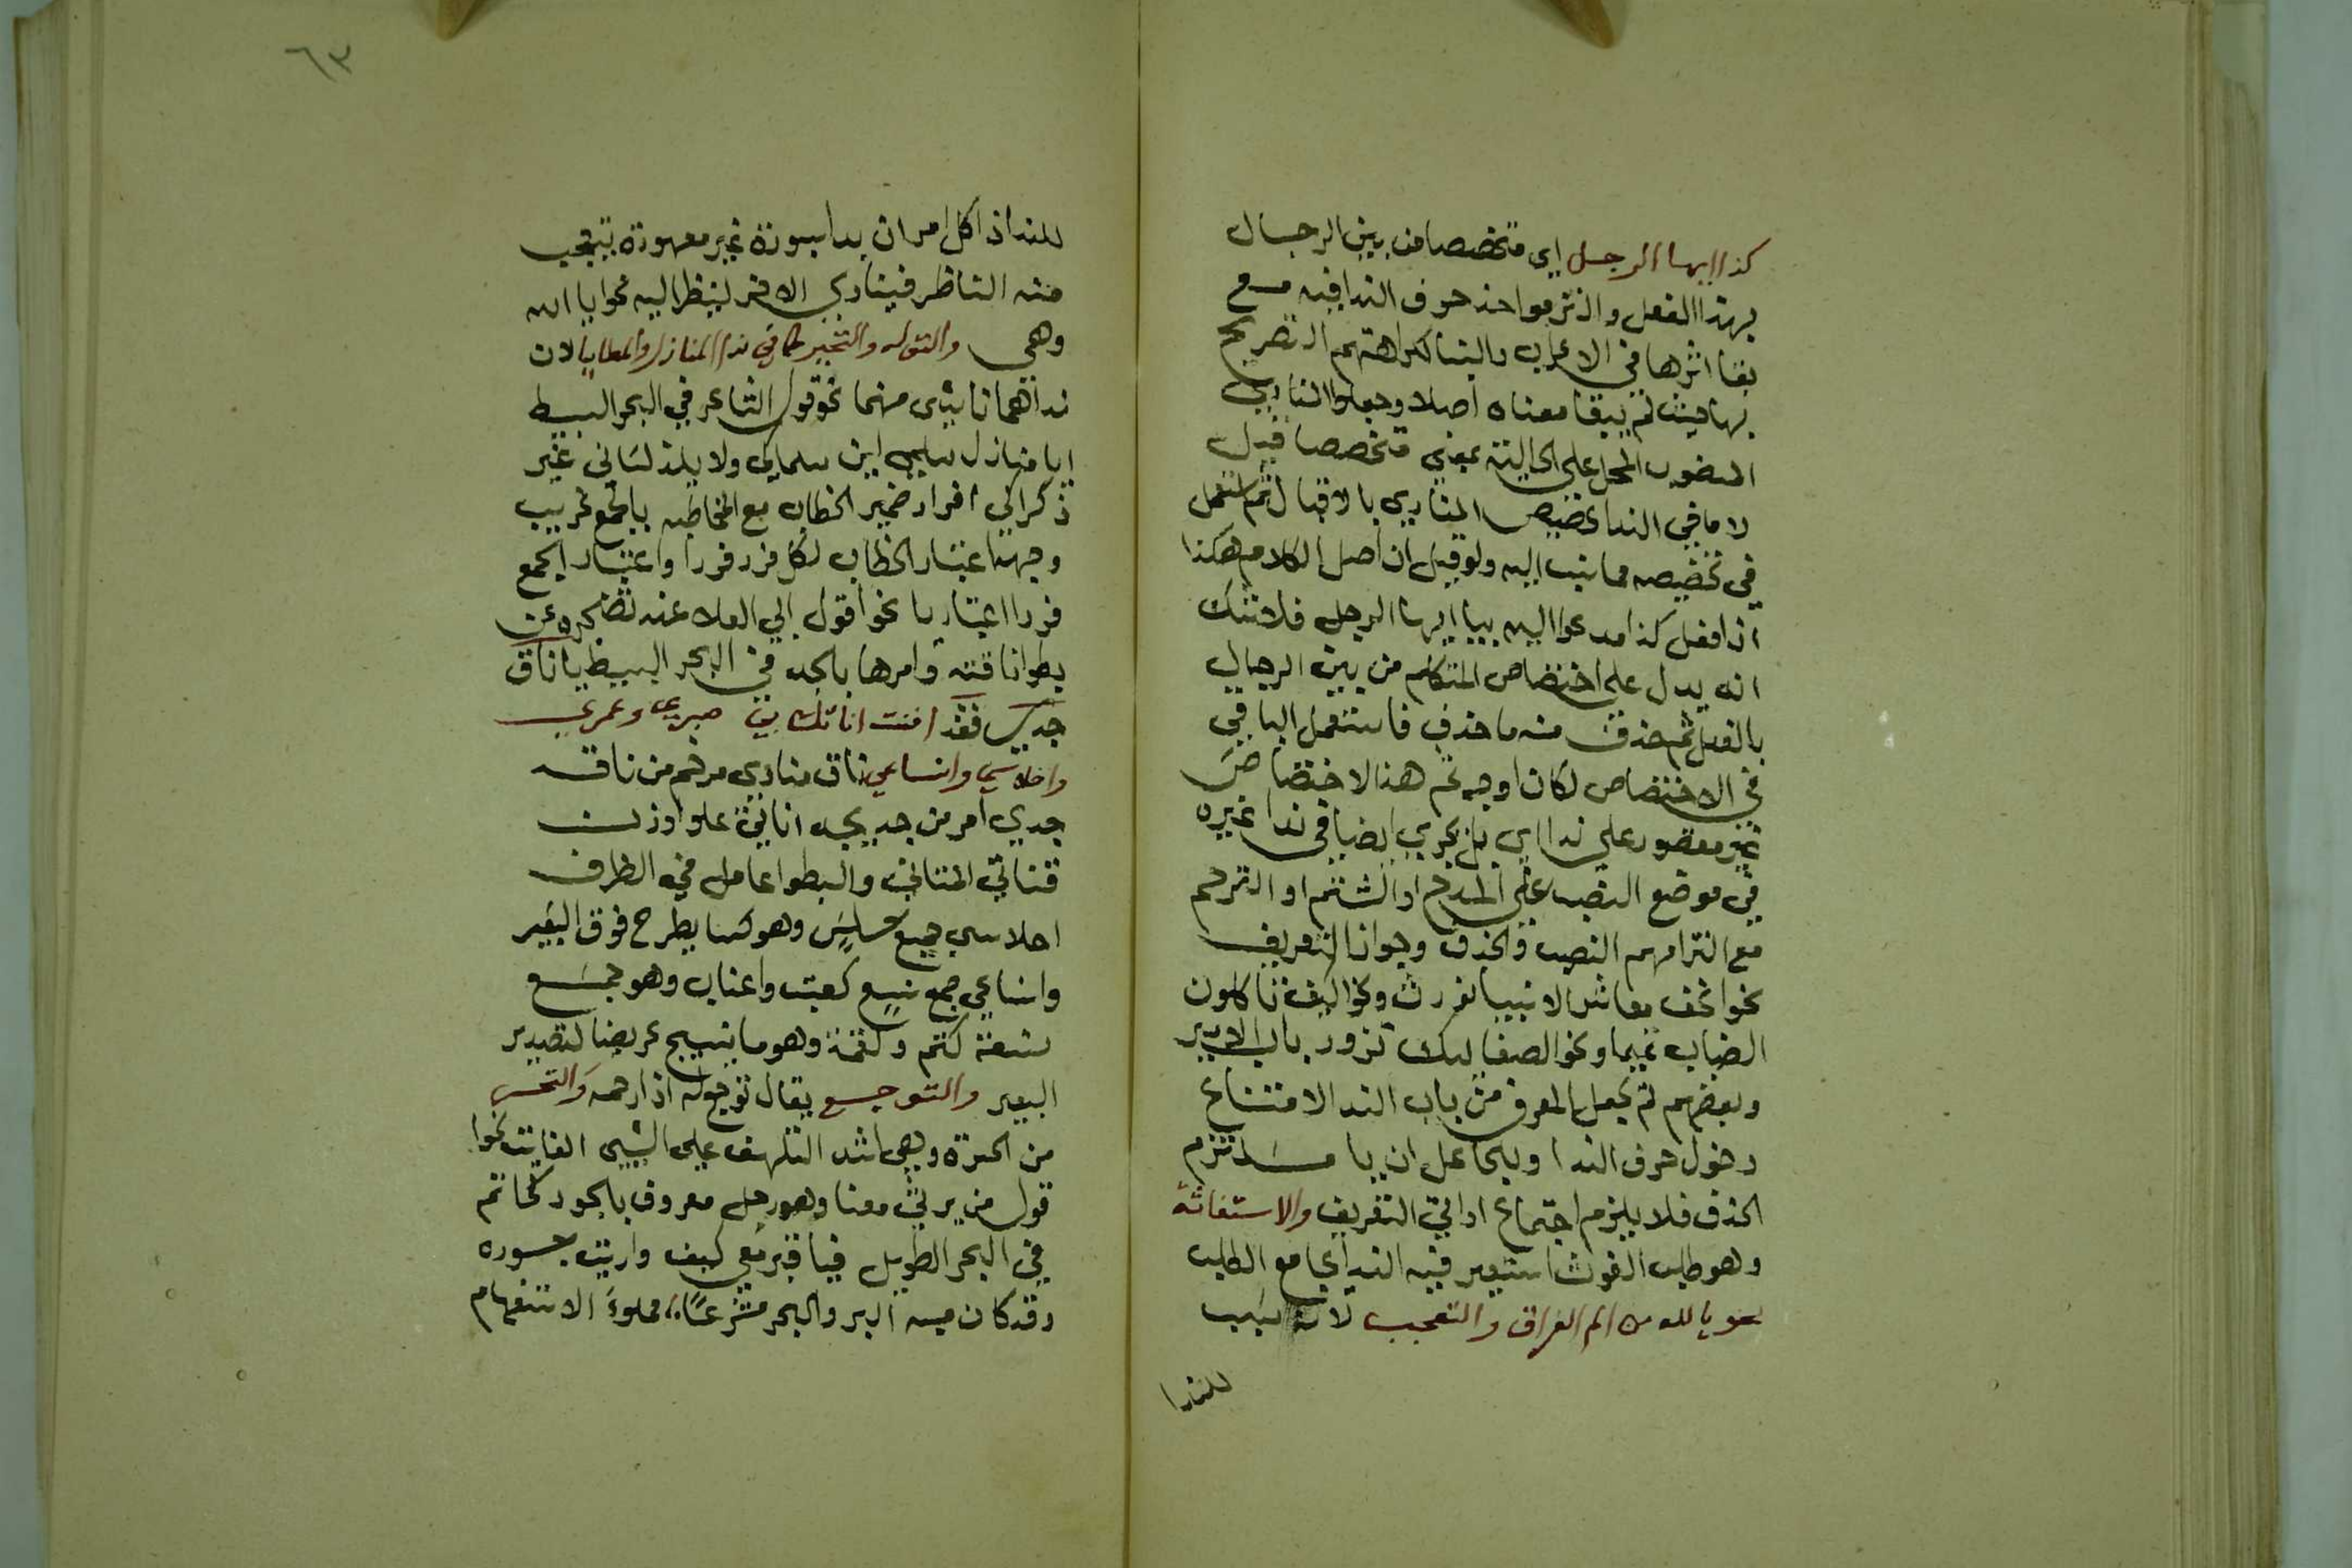 كذا ايها الرجل اي متخصصا من بين الرجال
بهذا الفعل والتزموا حذف حرف الندا فيه مع
بقا اثرها في الاعراب والبنا لكراهتهم التصريح
بها حيث لم يبقا معناه اصلا وجعلوا المنادي
المنصوب المحل علي الحالية بمعني متخصصا قيل
لا ما في الندا تخصيص المنادي بالاقبال ثم استعمل
في تخصيصه مما ينسب اليه ولو قيل ان اصل الكلام هكذا
انا افعل كذا مدعوا اليه بيا ايها الرجل فلا شك
انه يدل علي اختصاص المتكلم من بين الرجال
بالفعل ثم حذف منه ما حذف فاستعمل الباقي
في الاختصاص لكان اوجه ثم هذا الاختصاص
غير مقصور علي ندا اي بل يجري ايضا في ندا غيره
في موضع النصب علي المدح او الشتم او الترحم
مع التزامهم النصب والحذف وجواز التعريف
نحو انا نحن معاشر الانبيا لا نورث ونحو اكيف تاكلون
الضباب تميما ونحو الصعاليك تزور باب الامير
وبعضهم لم يجعل المعرف من باب الندا لامتناع
دخول حرف الندا وللجاعل ان يا مستلزم
الحذف فلا يلزم اجتماع اداتي التعريف والاستغاثة
وهو طلب الغوث استعير فيه الندا اي مع الطلب
نحو يا لله من الم الفراق والتعجب لانه سبب
للندا
٦٣
للندا اذ كل امر ان بدا بسورة غير معهودة يتعجب
منه الناظر فينادي الاخر لينظر اليه نحو ايا الله
وهي والتوله والتحير كما في ندا المنازل والمطايا لان
نداهما ناشئ منهما نحو قول الشاعر في البحر البسيط
ايا منازل سلمي اين سلماك ولا يلذ لساني غير
ذكراك افراد ضمير الخطاب مع المخاطبه بالجمع غريب
وجهه اعتبار الخطاب لكل فرد فردا واعتبار الجمع
فردا اعتباريا نحو قول ابي العلا عند تضجره عن
بطوا ناقته وامرها بالجد في البحر البسيط يا ناق
جدي فقد افنت اناتك بي صبري وعمري
واحلاسي وانساعي ناق منادي مرخم من ناقه
جدي امر من جد يجد اناتي علي وزن
قناتي التاني والبطوا عامل في الظرف
احلاسي جمع حلس وهو كسا يطرح فوق البعير
وانساعي جمع نسع كعنب واعناب وهو جمع
نسعة كتم وكتمة وهو ما ينسج عريضا لتصدير
البعير والتوجع يقال توجع له اذا رحمه والتحسر
من الحسرة وهي اشد التلهف علي الشيي الفايت نحو
قول من يرثي معنا وهو رجل معروف بالجود كحاتم
في البحر الطويل فيا قبر معن كيف واريت جوده
وقد كان منه البر والبحر مترعا اي مملوءَ الاستفهام